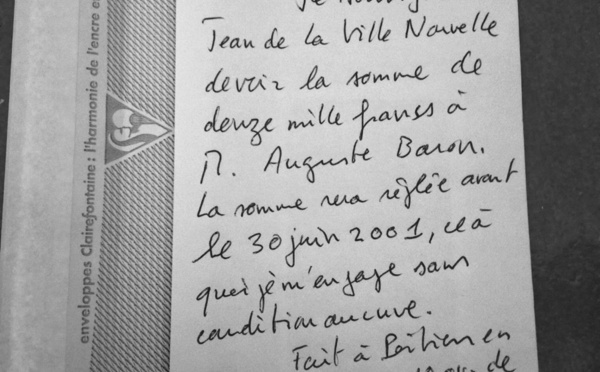 Jean de la Ville Nouvelle
devoir la somme de
douze mille francs à
M. Auguste Baron.
La somme sera réglée avant
le 30 juin 2001, ce à
quoi je m'engage sans
condition aucune.
Fait à Poitiers en
de
enveloppes Clairefontaine : l'harmonie de l'encre e